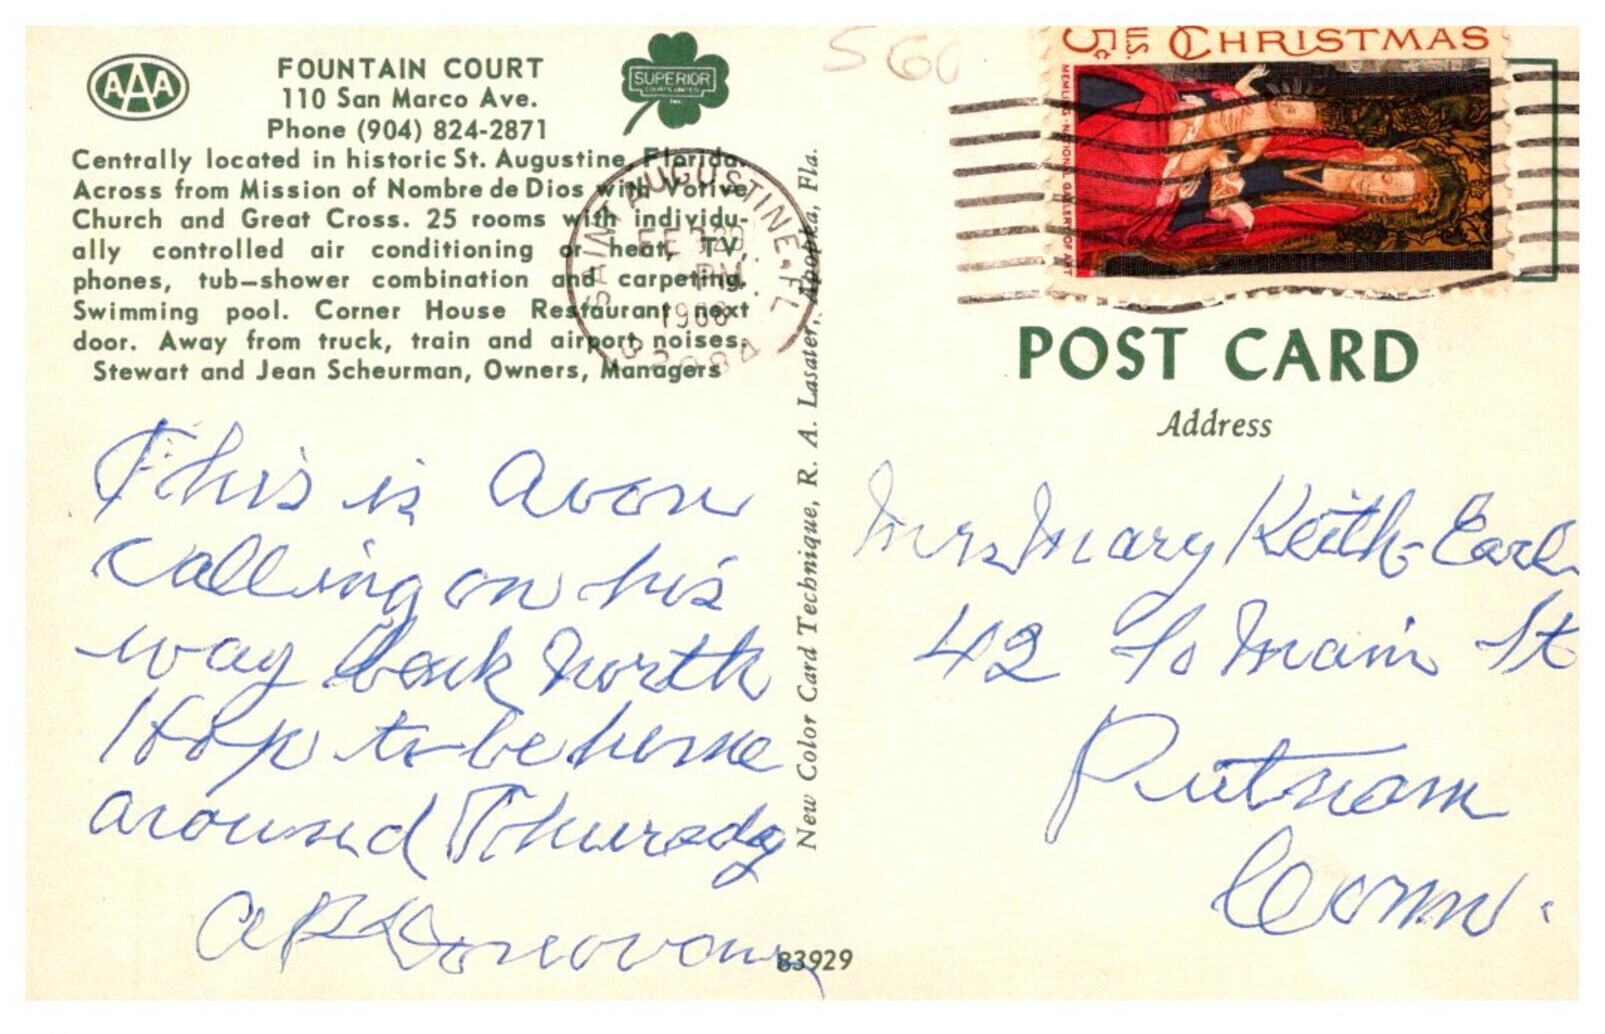 AAA
FOUNTAIN COURT
110 San Marco Ave.
Phone (904) 824-2871
SUPERIOR
COURTS UNITED
INC.
Centrally located in historic St. Augustine, Florida.
Across from Mission of Nombre de Dios with Votive
Church and Great Cross. 25 rooms with individu-
ally controlled air conditioning or heat, TV,
phones, tub-shower combination and carpeting.
Swimming pool. Corner House Restaurant next
door. Away from truck, train and airport noises.
Stewart and Jean Scheurman, Owners, Managers
SAINT AUGUSTINE, FL
PM
1968
32084
This is Avon
Calling on his
way back North
Hop to be home
around Thursday
A P Donovan
83929
New Color Card Technique, R. A. Lasater, Apopka, Fla.
560
5c U.S. CHRISTMAS
MEMLING · NATIONAL GALLERY OF ART
POST CARD
Address
Mrs Mary Keith-Earl
42 So Main St
Putnam
Conn.